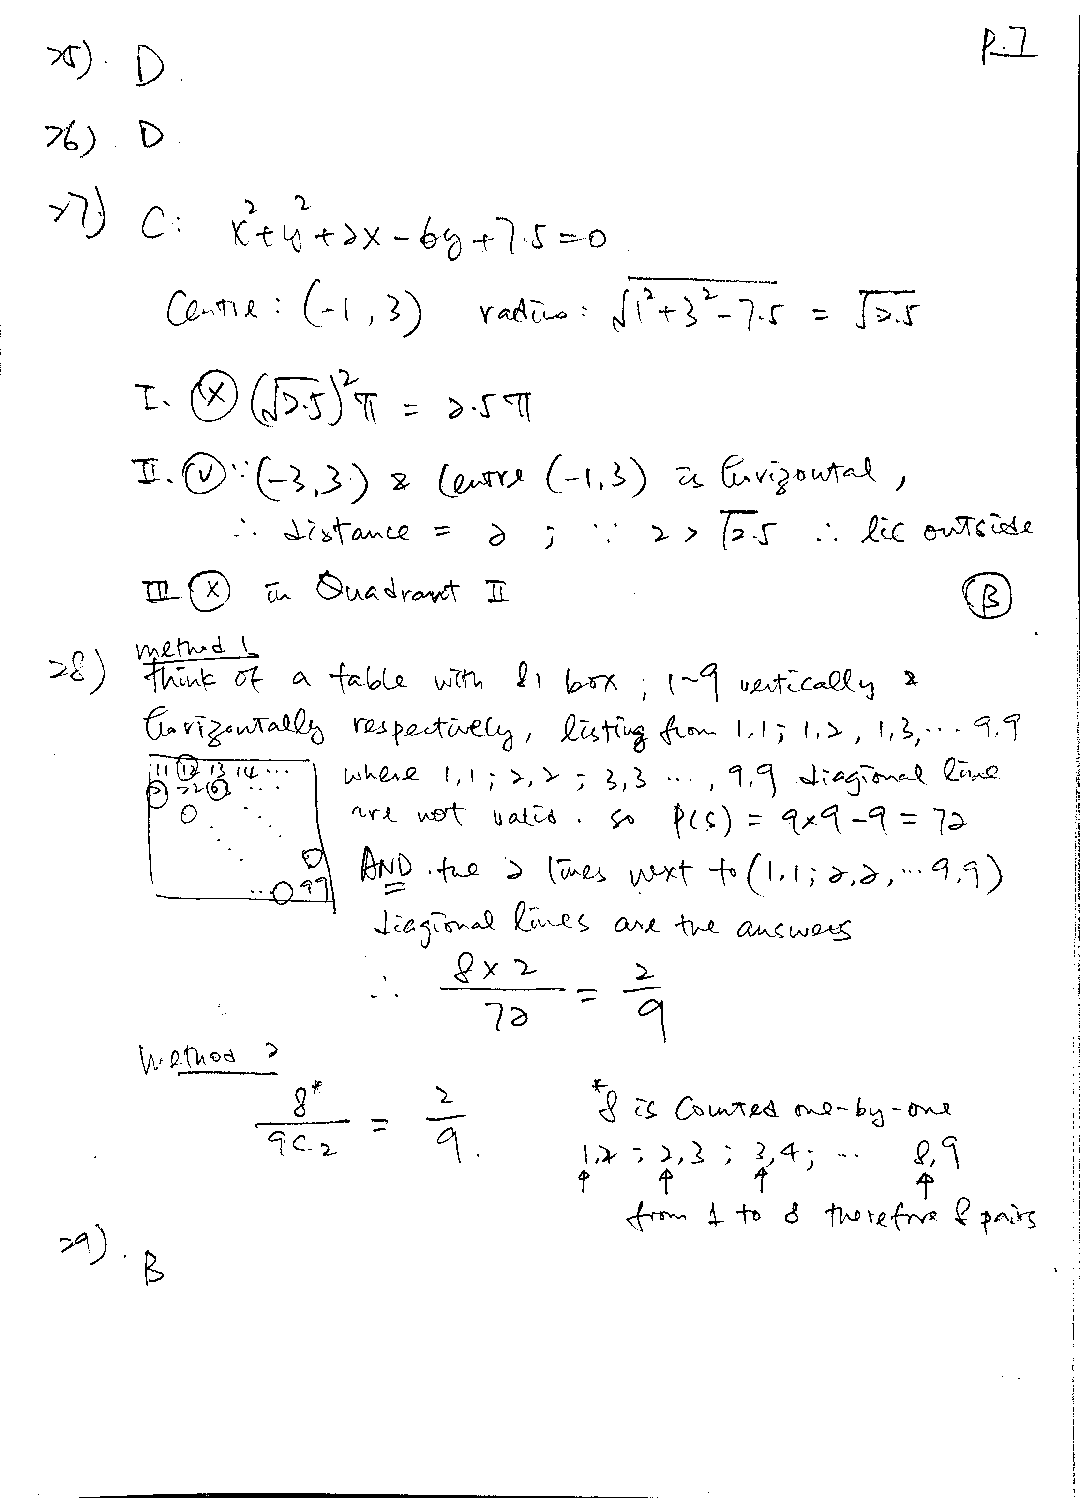 P.7
25). D.
26). D.
27) C: x²+y²+2x-6y+7.5=0
Centre: (-1,3) radius: √1²+3²-7.5 = √2.5
I. ⓧ (√2.5)²π = 2.5π
II. (✓) ∵(-3,3) & Centre (-1,3) is horizontal,
∴ distance = 2 ; ∵ 2 > √2.5 ∴ lie outside
III ⓧ in Quadrant II Ⓑ
28) method 1
think of a table with 81 box ; 1~9 vertically &
horizontally respectively, listing from 1,1; 1,2, 1,3, ... 9,9
11 ⑫ 13 14 ...
where 1,1 ; 2,2 ; 3,3 ..., 9,9 diagional line
22
are not valid. so P(S) = 9x9-9 = 72
AND the 2 lines next to (1,1; 2,2, ... 9,9)
... 99
diagional lines are the answers
∴ 8x2/72 = 2/9
Method 2
8*/9C2 = 2/9.
*8 is counted one-by-one
1,2 ; 2,3 ; 3,4; ... 8,9
↑ ↑ ↑ ↑
from 1 to 8 therefore 8 pairs
29). B